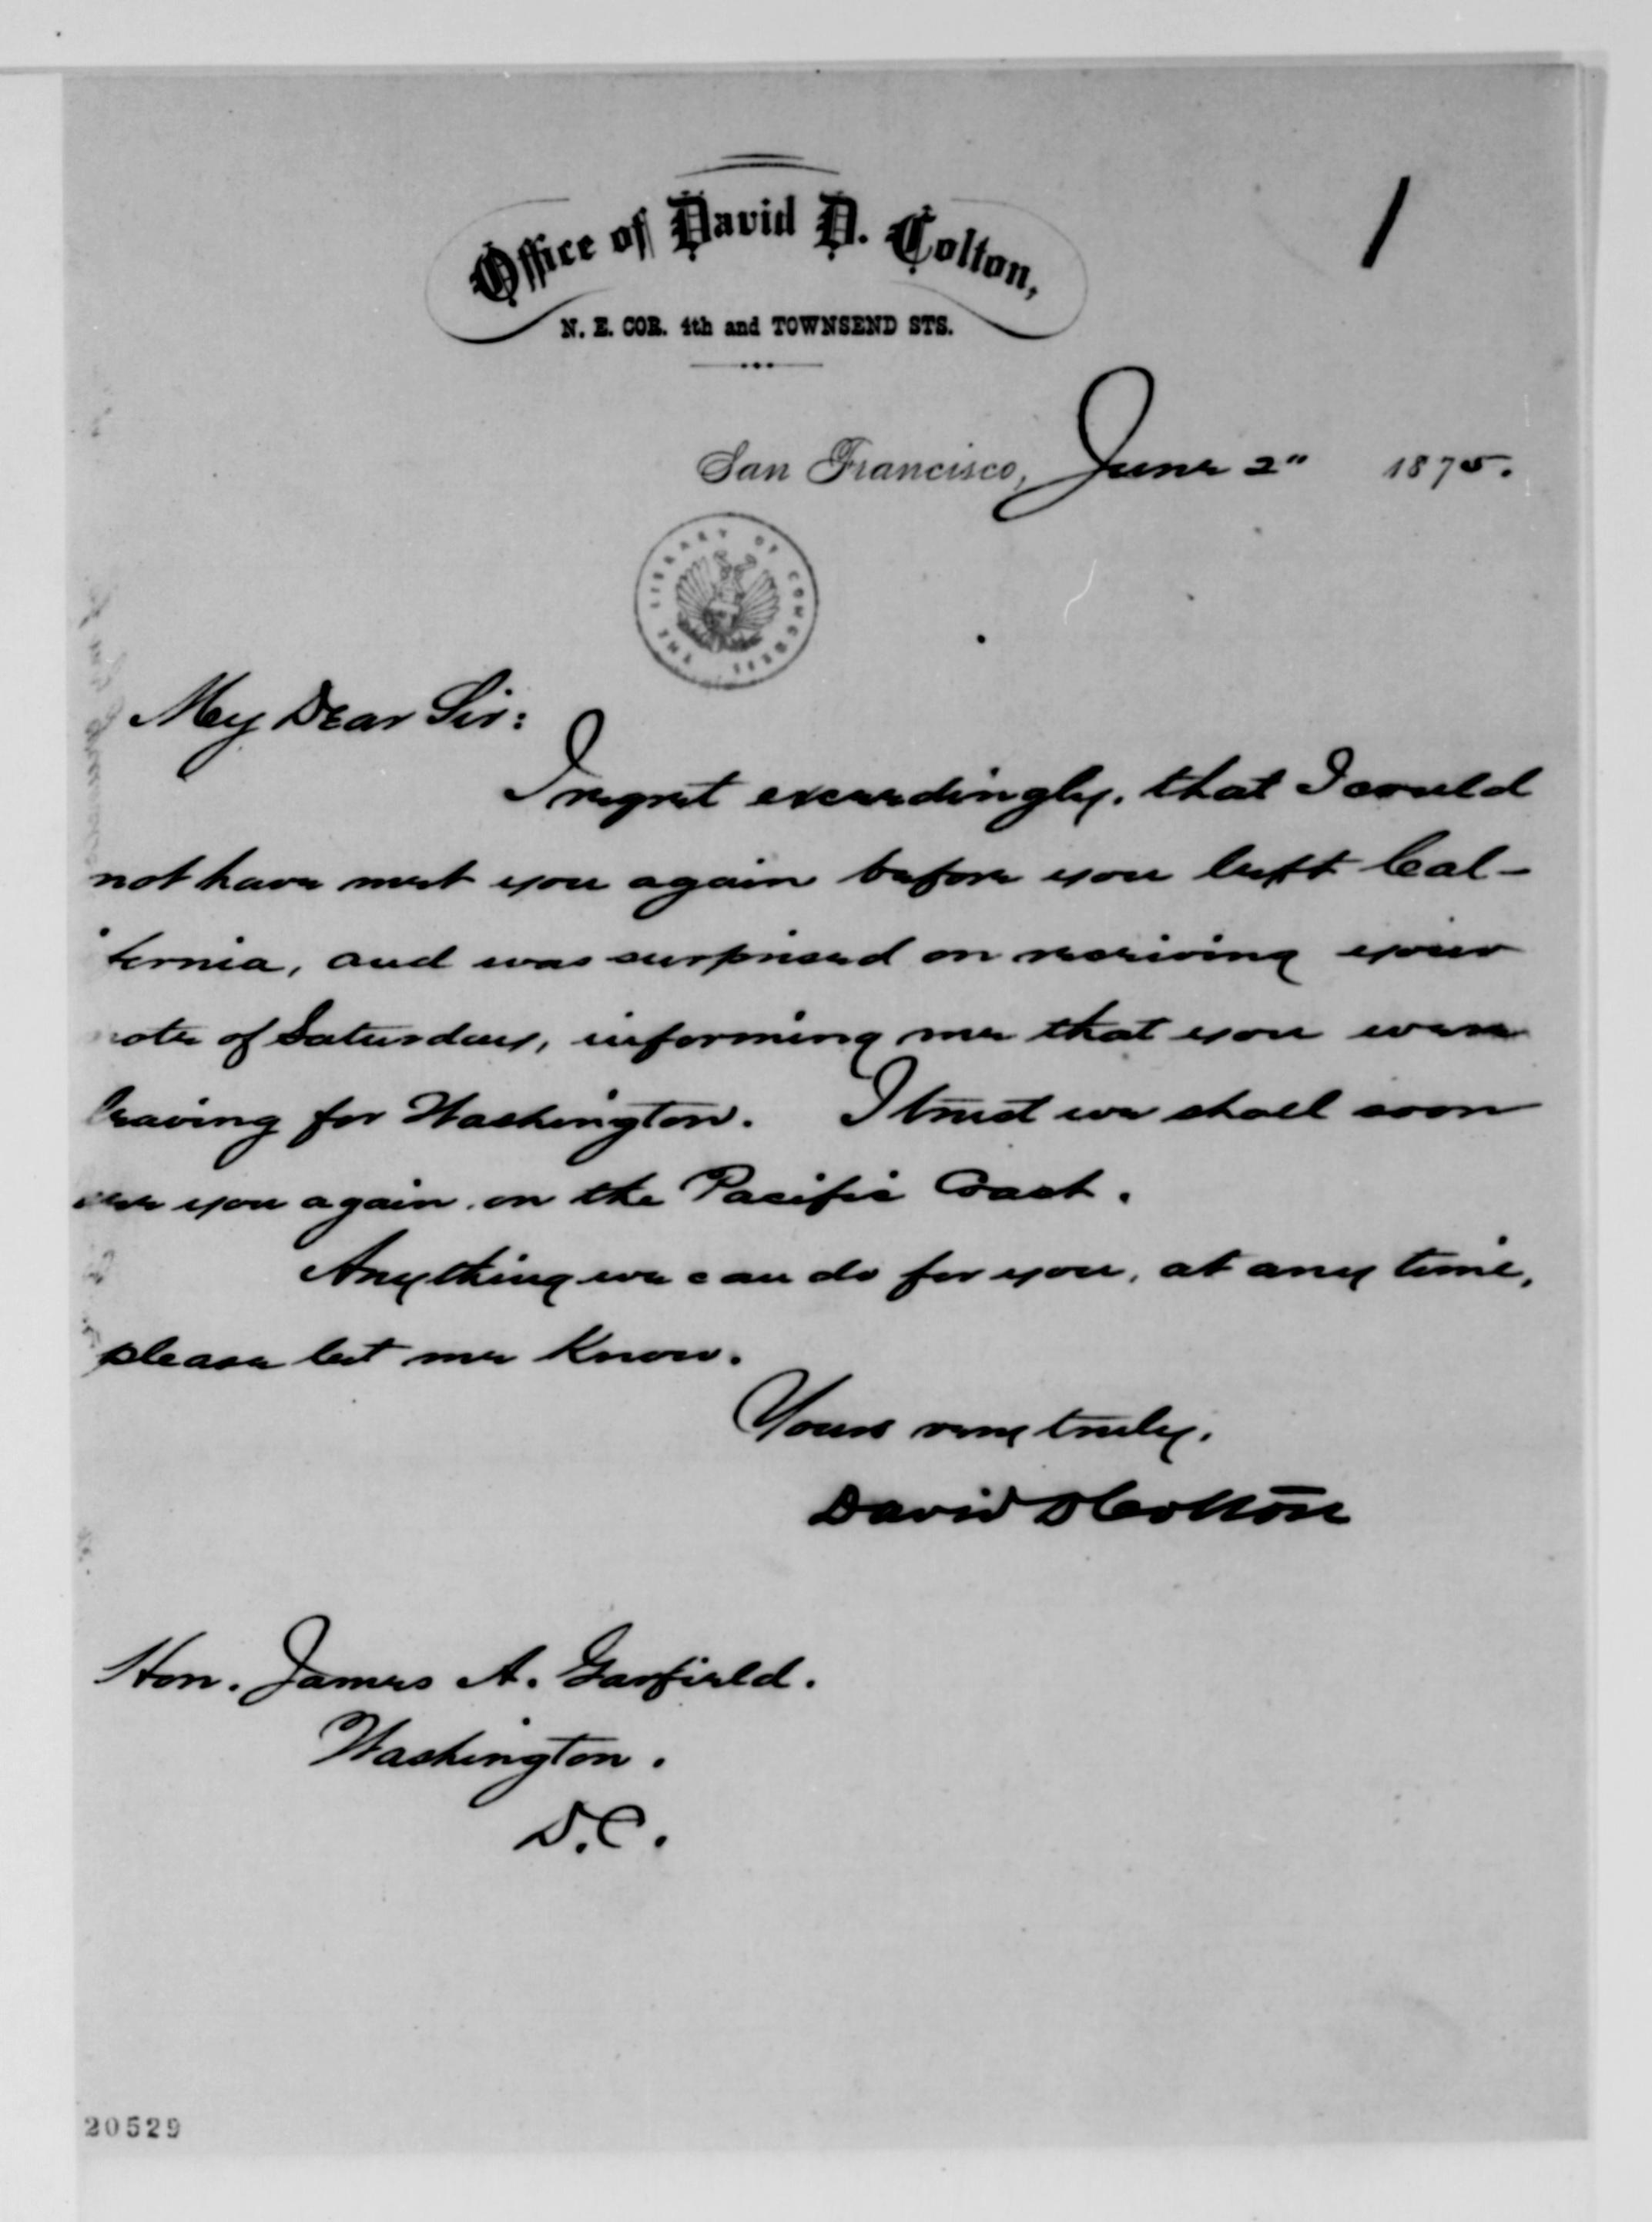 Office of David D. Colton,
N. E. COR. 4th and TOWNSEND STS.
1
San Francisco, June 2" 1875.
THE LIBRARY OF CONGRESS
My Dear Sir:
I regret exceedingly, that I could
not have met you again before you left Cal-
ifornia, and was surprised on receiving your
note of Saturday, informing me that you were
leaving for Washington. I trust we shall soon
see you again, on the Pacific Coast.
Anything we can do for you, at any time,
please let me know.
Yours very truly,
David D Colton
Hon. James A. Garfield.
Washington.
D.C.
20529